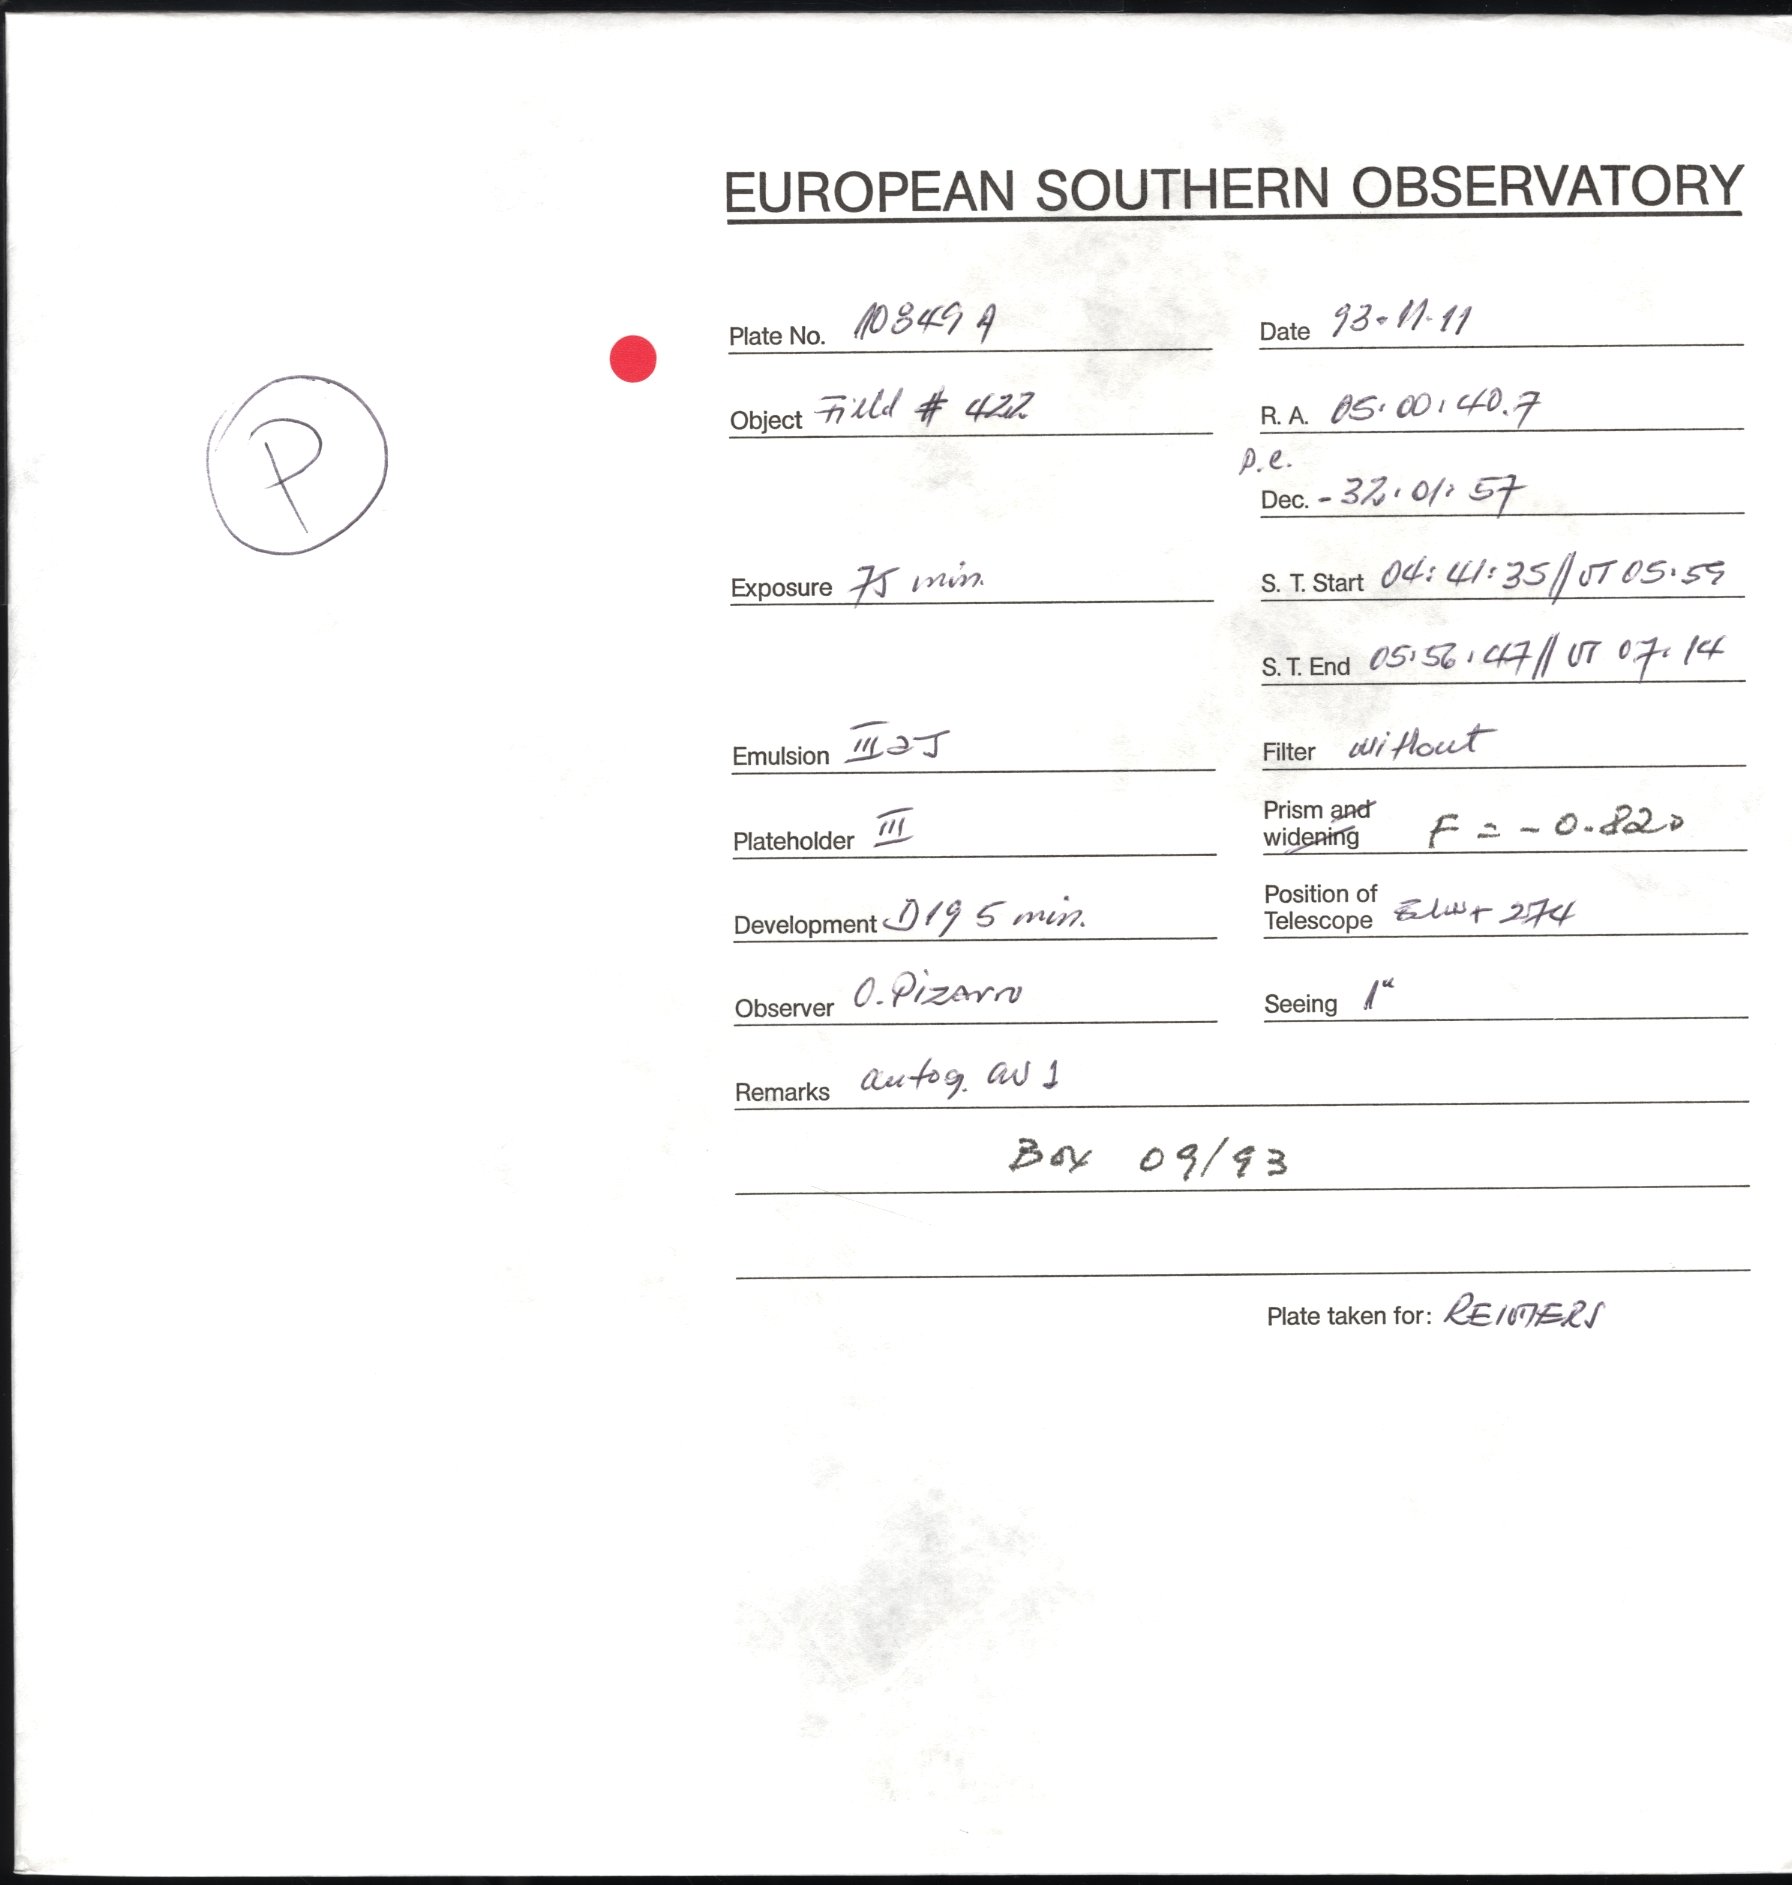 EUROPEAN SOUTHERN OBSERVATORY
Plate No. 10849 A
Date 93-11-11
P
Object Field # 422
R. A. 05:00:40.7
p.e.
Dec. -32:01:57
Exposure 75 min.
S. T. Start 04:41:35//UT 05:59
S. T. End 05:56:47//UT 07:14
Emulsion III aJ
Filter without
Plateholder III
Prism and
widening F = -0.820
Development D19 5 min.
Position of
Telescope 274
Observer O. Pizarro
Seeing 1"
Remarks autog. 1
Box 09/93
Plate taken for: REIMERS